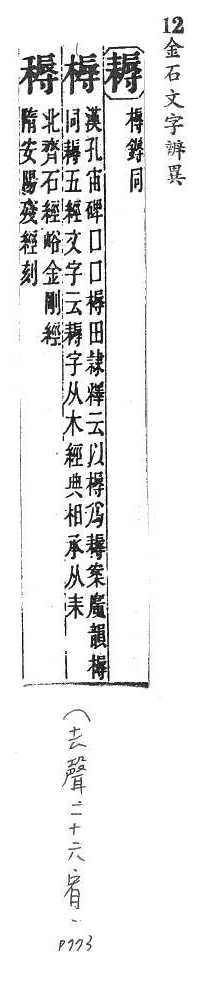 12金石文字辨異
耨
槈鎒同
槈
漢孔宙碑囗囗槈田隸釋云以槈爲耨案廣韻槈
同耨五經文字云耨字从木經典相承从耒
北齊石經峪金剛經
隋安陽殘經刻
(去聲二十六宥、
P773